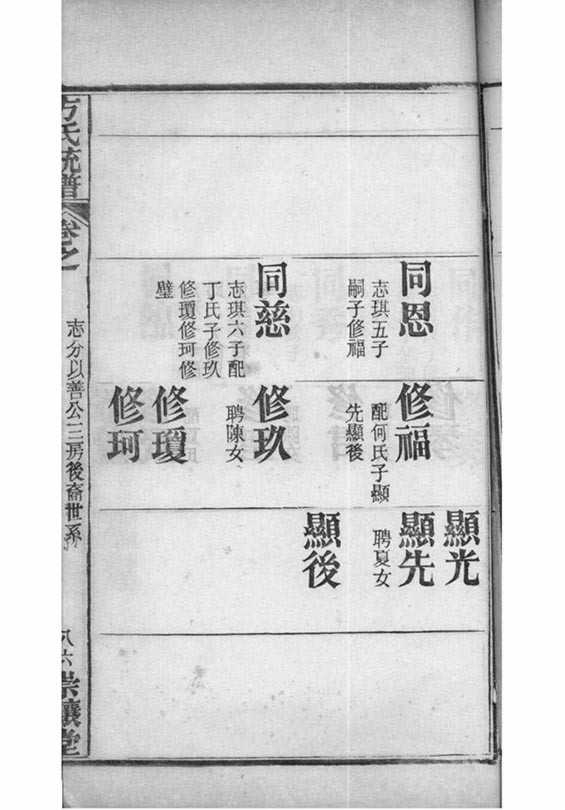 同恩
志琪五子
嗣子修福
同慈
志琪六子配
丁氏子修玖
修瓊修珂修
璧
修福
配何氏子顯
先顯後
修玖
聘陳女
修瓊
修珂
顯光
顯先
聘夏女
顯後
方氏統譜
卷之一
志分以善公三房後裔世系
八六
崇讓堂